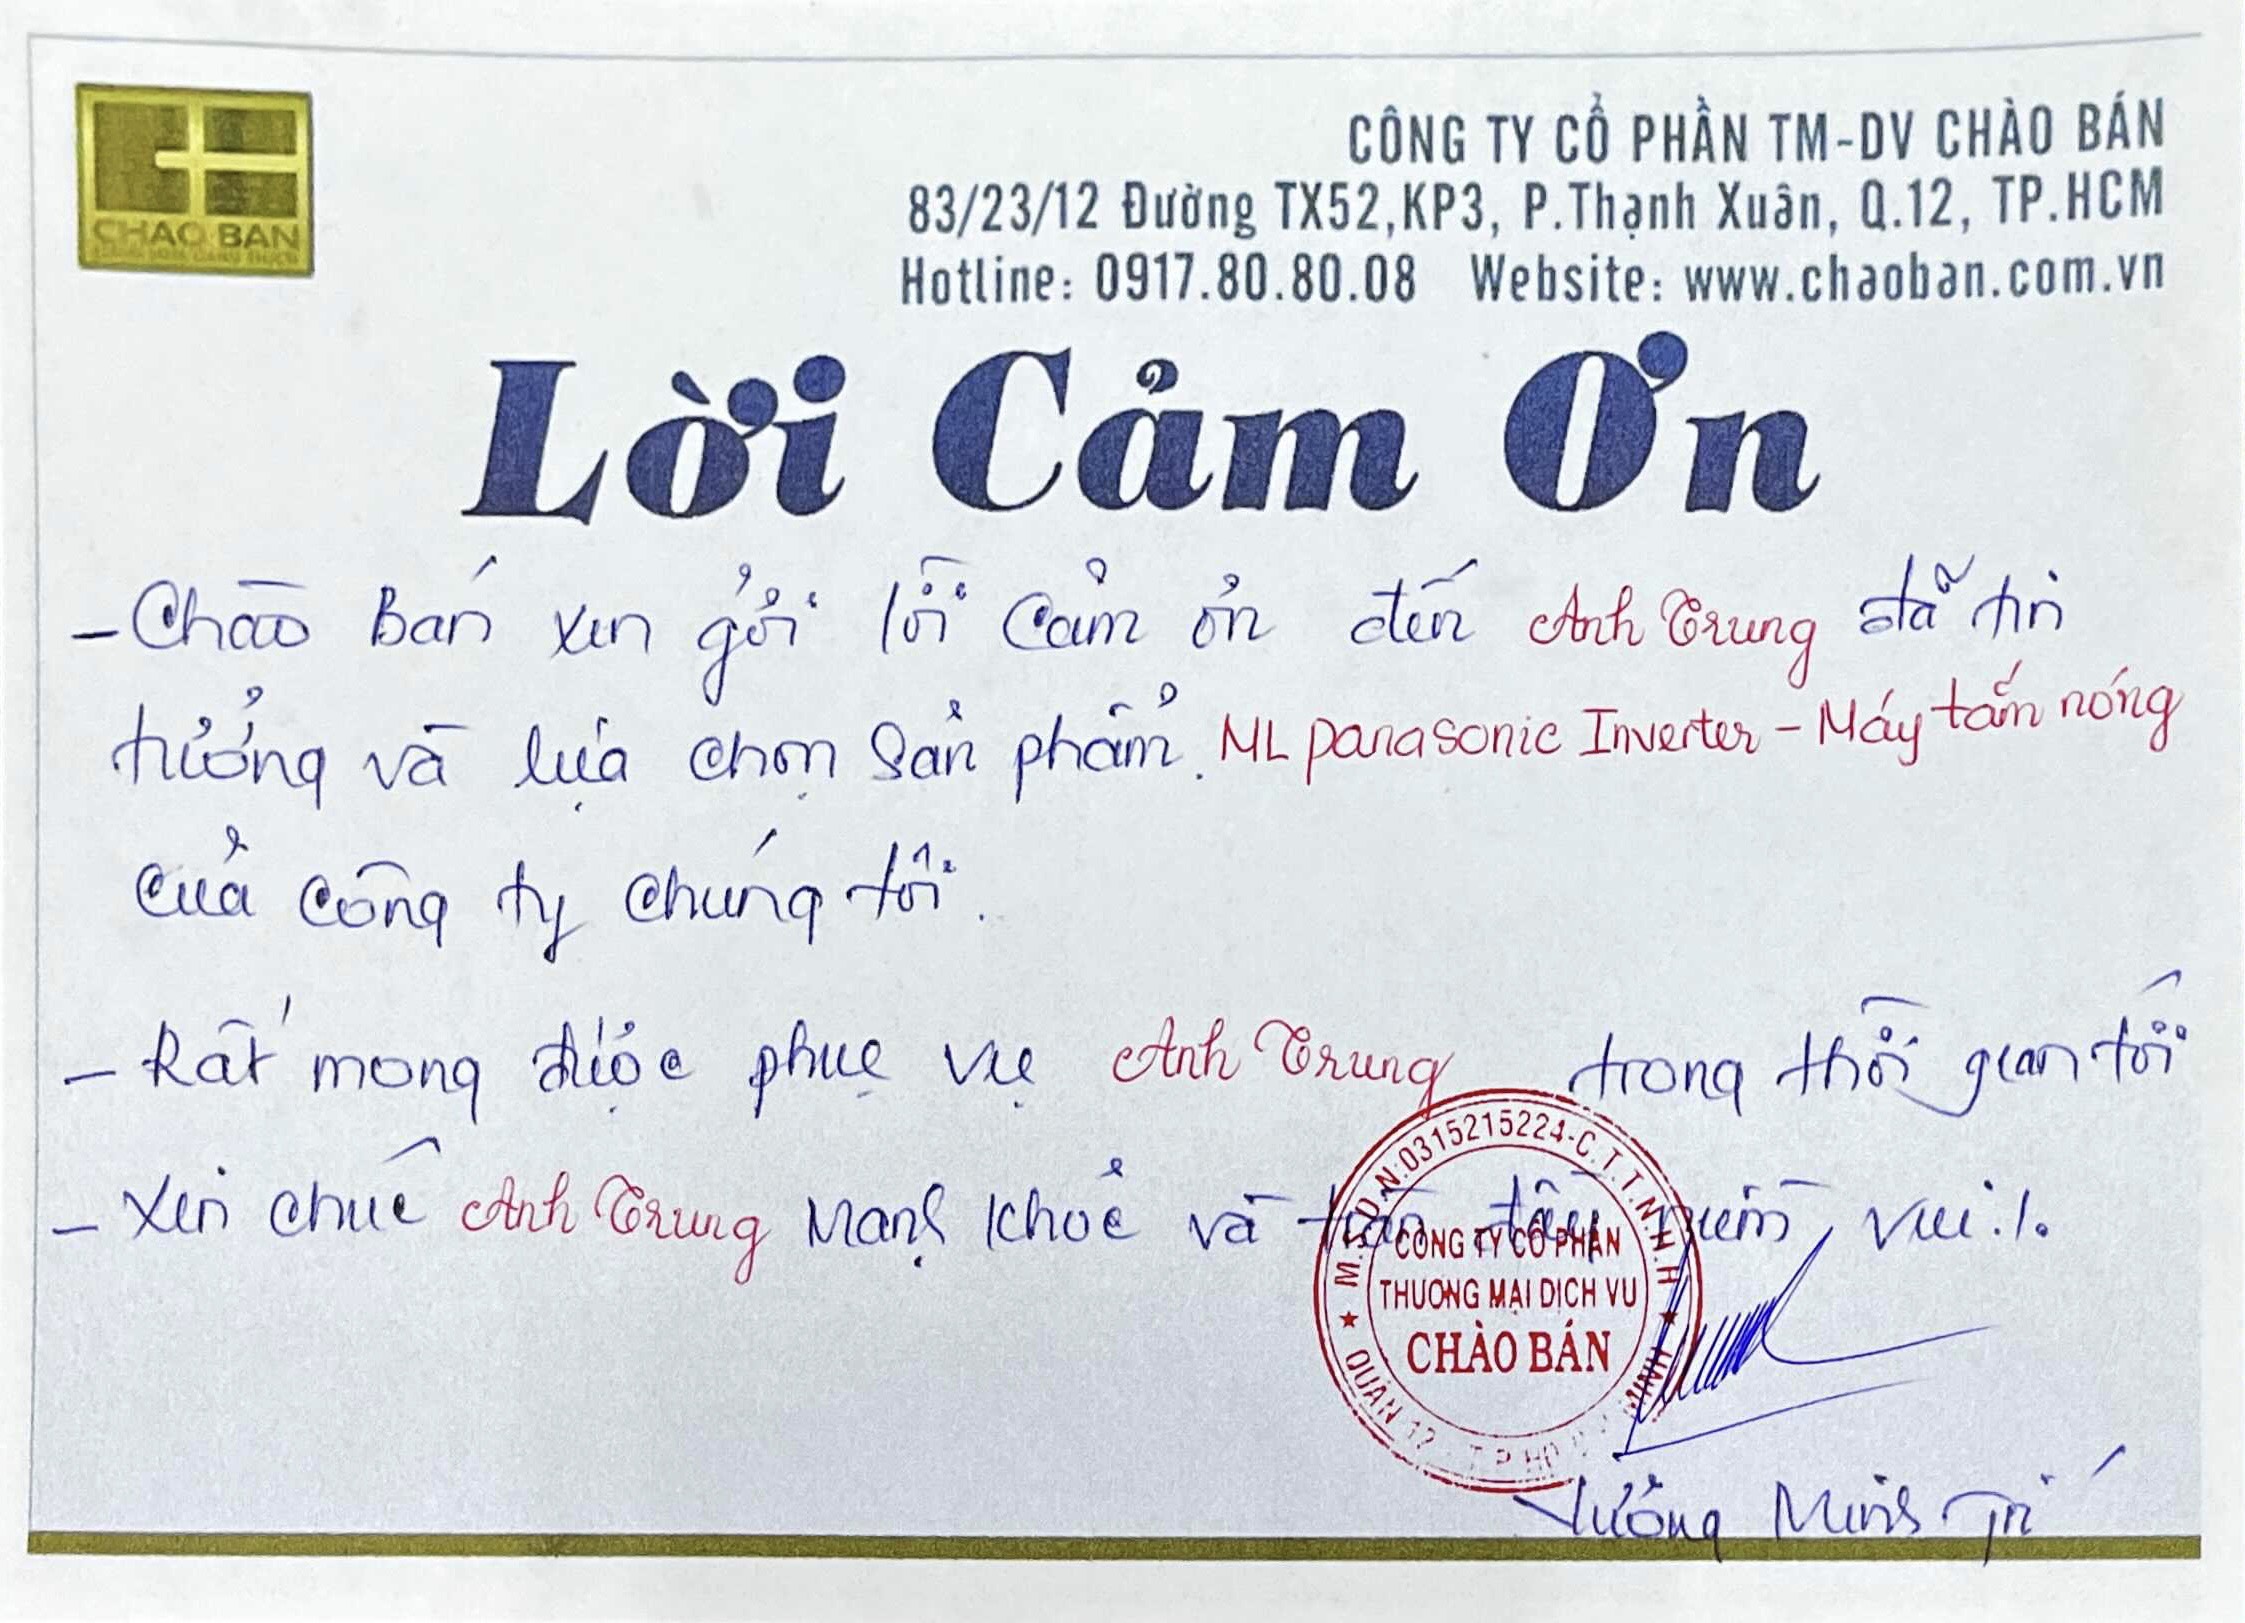 CHÀO BÁN
CÔNG TY CỔ PHẦN TM-DV CHÀO BÁN
83/23/12 Đường TX52,KP3, P.Thạnh Xuân, Q.12, TP.HCM
Hotline: 0917.80.80.08 Website: www.chaoban.com.vn
Lời Cảm Ơn
- Chào Bán xin gởi lời cảm ơn đến Anh Trung đã tin
tưởng và lựa chọn sản phẩm. ML panasonic Inverter - Máy tắm nóng
của công ty chúng tôi.
- Rất mong được phục vụ Anh Trung trong thời gian tới
- Xin chúc Anh Trung mạnh khoẻ và tràn đầy niềm vui./.
M.S.D.N:0315215224-C.T.T.N.H.H
CÔNG TY CỔ PHẦN
THƯƠNG MẠI DỊCH VỤ
CHÀO BÁN
QUẬN 12 - T.P HỒ CHÍ MINH
Minh Trí